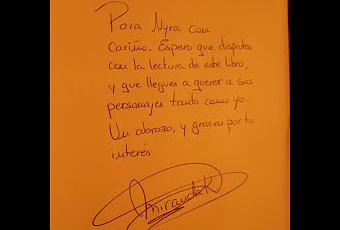 Para Nyra con
Cariño. Espero que disfrutes
con la lectura de este libro,
y que llegues a querer a sus
personajes tanto como yo.
Un abrazo, y gracias por tu
interés
MirandaK